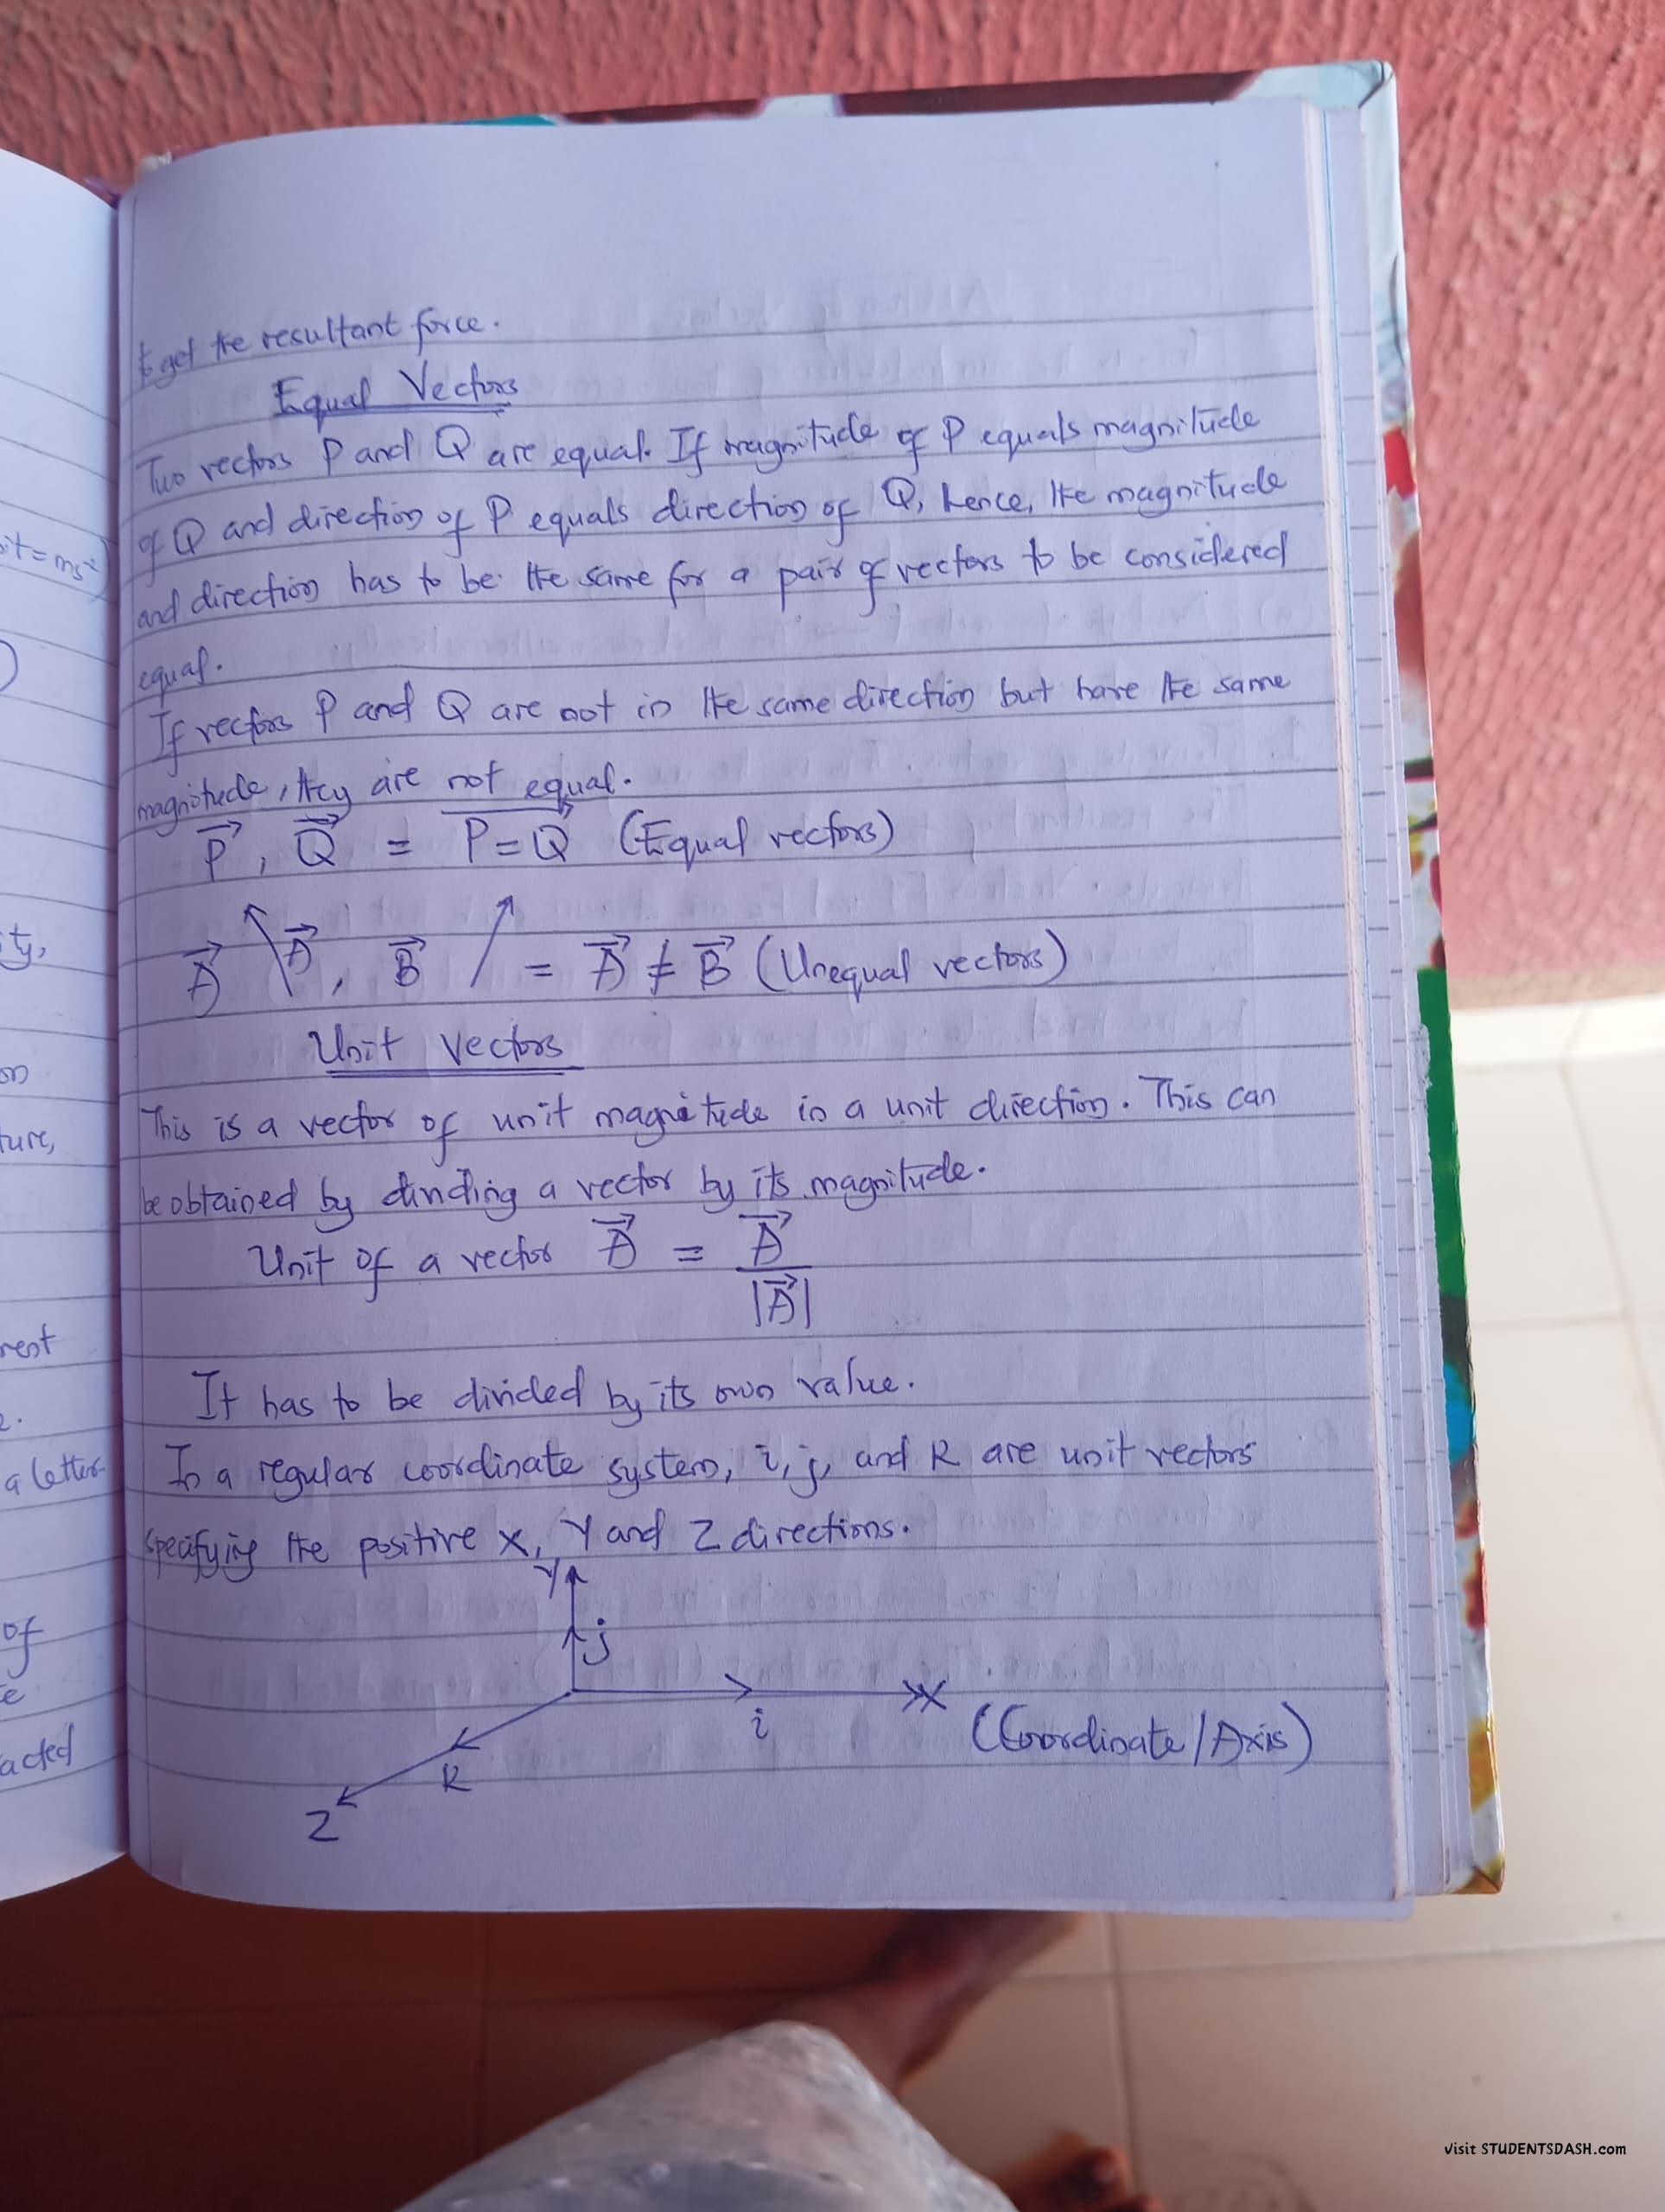 to get the resultant force.
Equal Vectors
Two vectors P and Q are equal. If magnitude of P equals magnitude
of Q and direction of P equals direction of Q, hence, the magnitude
and direction has to be the same for a pair of vectors to be considered
equal.
If vectors P and Q are not in the same direction but have the same
magnitude, they are not equal.
P⃗, Q⃗ = P=Q (Equal vectors)
A⃗ A⃗, B⃗ = A⃗ ≠ B⃗ (Unequal vectors)
Unit Vectors
This is a vector of unit magnitude in a unit direction. This can
be obtained by dividing a vector by its magnitude.
Unit of a vector A⃗ = A⃗
|A⃗|
It has to be divided by its own value.
In a regular coordinate system, i, j, and K are unit vectors
specifying the positive X, Y and Z directions.
Y
j
X
i
(Coordinate/Axis)
K
Z
it = ms²)
ity,
on
ture,
rent
e.
a letter
of
e
acted
visit STUDENTSDASH.com